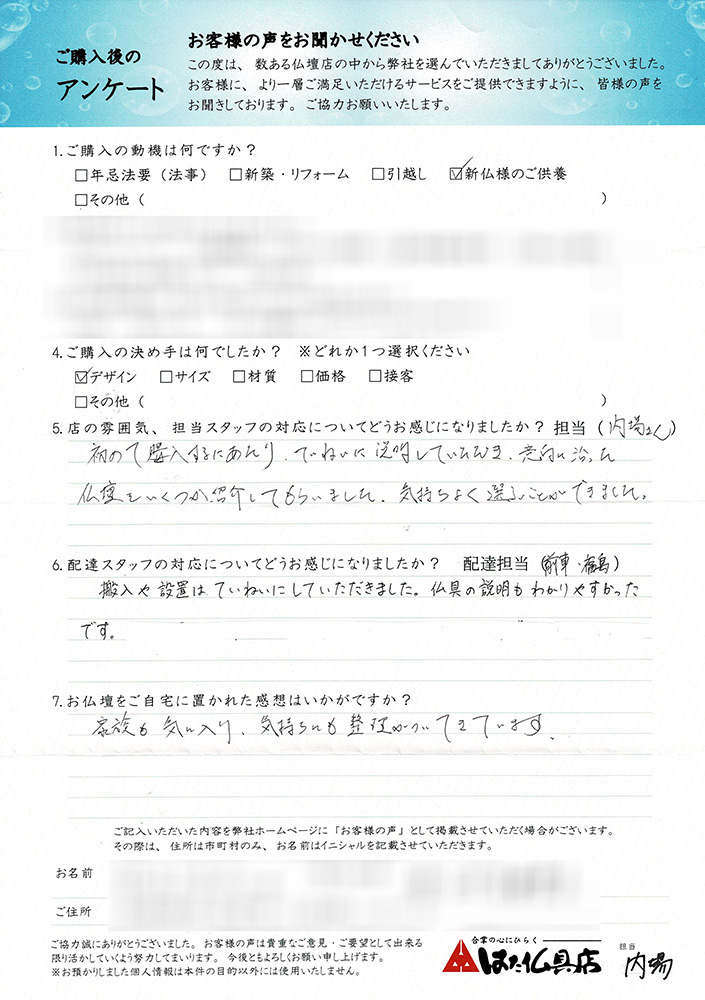 ご購入後の
アンケート
お客様の声をお聞かせください
この度は、数ある仏壇店の中から弊社を選んでいただきましてありがとうございました。
お客様に、より一層ご満足いただけるサービスをご提供できますように、皆様の声を
お聞きしております。ご協力お願いいたします。
1.ご購入の動機は何ですか?
□年忌法要(法事) □新築・リフォーム □引越し ☑新仏様のご供養
□その他( )
4.ご購入の決め手は何でしたか? ※どれか1つ選択ください
☑デザイン □サイズ □材質 □価格 □接客
□その他( )
5.店の雰囲気、担当スタッフの対応についてどうお感じになりましたか?担当(内場さん)
初めて購入するにあたり、ていねいに説明していただき、意向に沿った
仏壇をいくつか紹介してもらいました。気持ちよく選ぶことができました。
6.配達スタッフの対応についてどうお感じになりましたか? 配達担当(前車・福島)
搬入や設置はていねいにしていただきました。仏具の説明もわかりやすかった
です。
7.お仏壇をご自宅に置かれた感想はいかがですか?
家族も気に入り、気持ちにも整理がついてきています。
ご記入いただいた内容を弊社ホームページに「お客様の声」として掲載させていただく場合がございます。
その際は、住所は市町村のみ、お名前はイニシャルを記載させていただきます。
お名前
ご住所
ご協力誠にありがとうございました。お客様の声は貴重なご意見・ご要望として出来る
限り活かしていくよう努力してまいります。今後ともよろしくお願い申し上げます。
※お預かりしました個人情報は本件の目的以外には使用いたしません。
合掌の心にひらく
はた仏具店
担当
内場